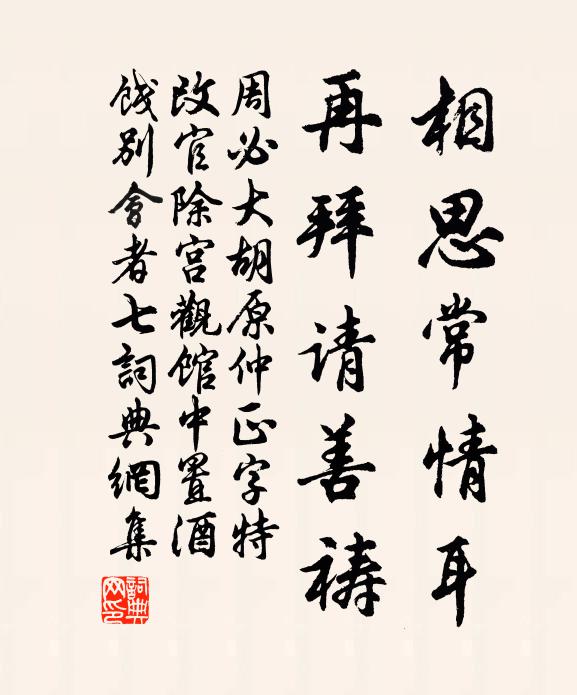 相思常情耳
再拜请善祷
周必大胡原仲正字特
改官除宫觀馆中置酒
饯别會者七詞典網集
詞典网印